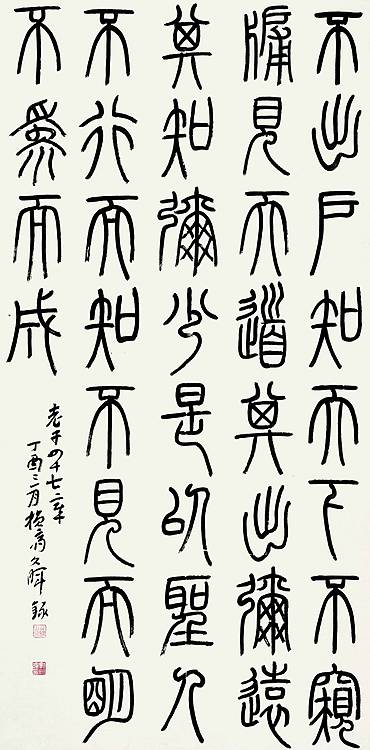 不出戶知天下不窺
牖見天道其出彌遠
其知彌少是以聖人
不行而知不見而明
不為而成
老子四十七章
丁酉三月